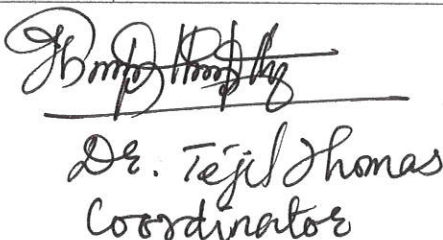 Dr. Tejil Thomas
Coordinator